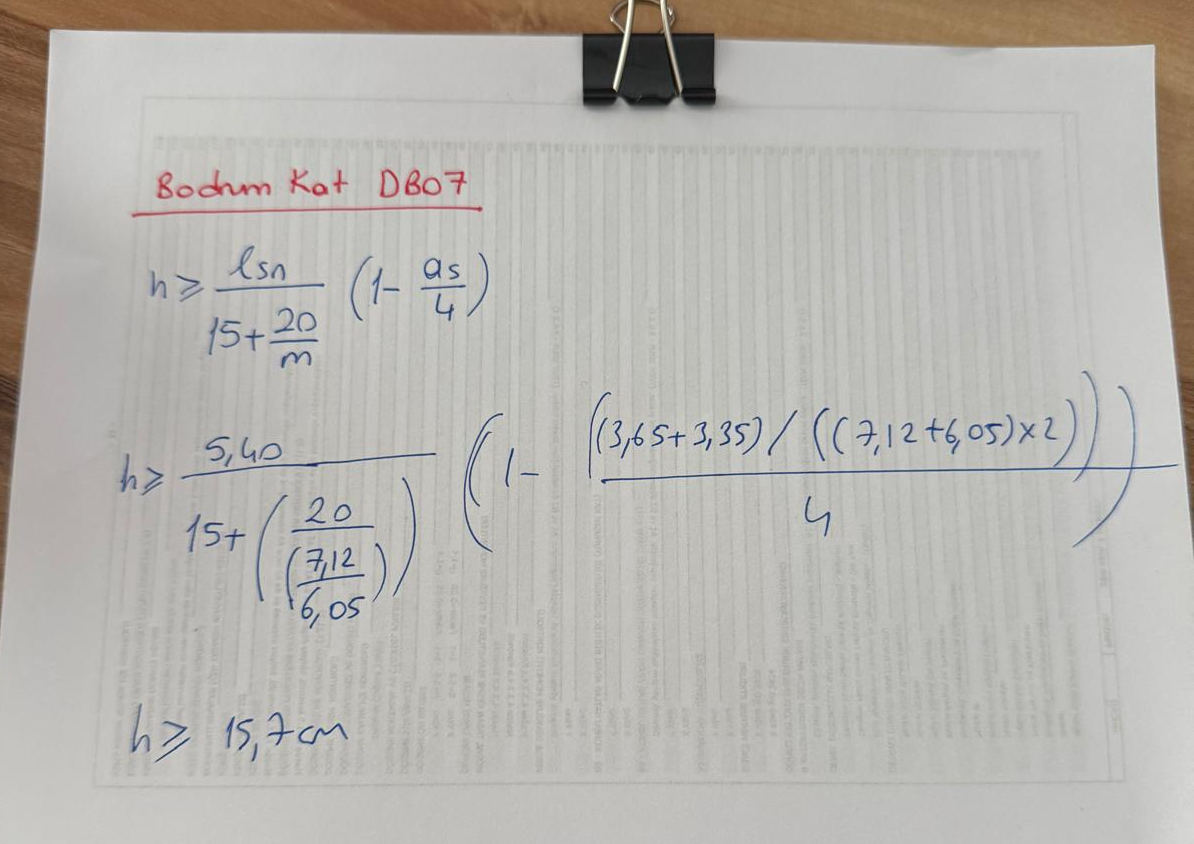 Bodrum Kat DB07
h ≥ lsn / (15 + 20/m) (1 - as/4)
h ≥ 5,40 / (15 + (20 / (7,12 / 6,05))) (1 - ((3,65 + 3,35) / ((7,12 + 6,05) × 2)) / 4)
h ≥ 15,7 cm